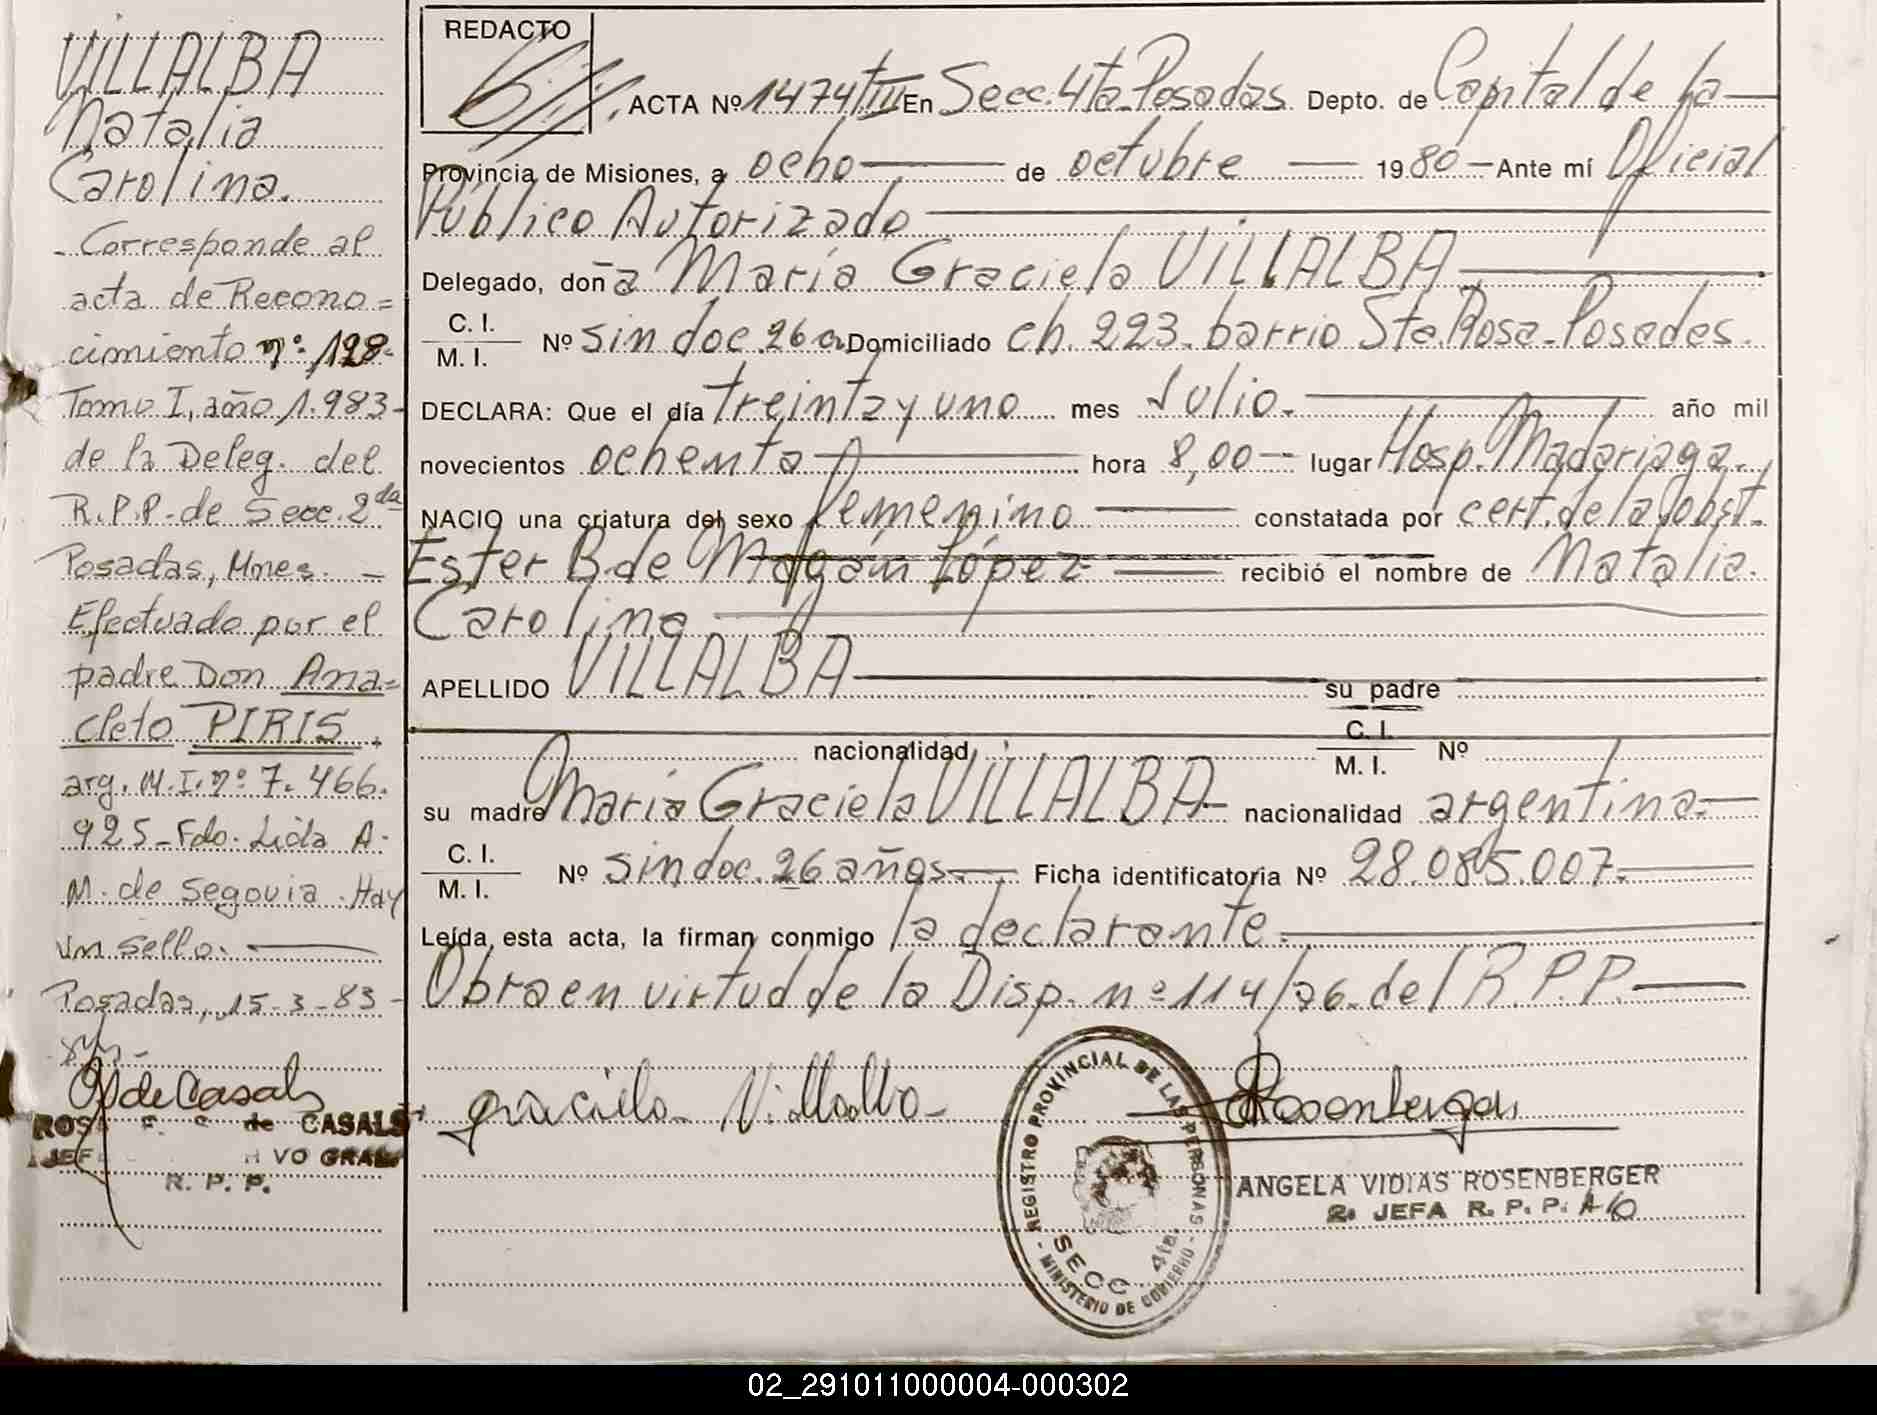 VILLALBA
Natalia
Carolina.
- Corresponde al
acta de Recono=
cimiento nº: 128-
Tomo I, año 1.983-
de la Deleg. del
R.P.P. de Secc. 2da
Posadas, Mnes. -
Efectuado por el
padre Don Ana=
cleto PIRIS,
arg. M.I. nº 7.466.
925- Fdo. Lida A.
M. de Segovia. Hay
un sello.
Posadas, 15-3-83-
ROSA de CASALS
JEF VO GRAL
R. P. P.
REDACTO
ACTA Nº 1474 tIII En Secc. 4ta Posadas Depto. de Capital de la
Provincia de Misiones, a ocho de octubre 1980 - Ante mí Oficial
Público Autorizado
Delegado, doña María Graciela VILLALBA
C. I.
M. I. Nº sin doc. 26 a Domiciliado ch. 223. barrio Sta. Rosa - Posadas.
DECLARA: Que el día treinta y uno mes Julio. año mil
novecientos ochenta hora 8,00 lugar Hosp. Madariaga.
NACIO una criatura del sexo femenino constatada por cert. de la obst.
Ester B. de Magán López recibió el nombre de Natalia
Carolina
APELLIDO VILLALBA su padre
nacionalidad C. I.
M. I. Nº
su madre María Graciela VILLALBA - nacionalidad argentina.
C. I.
M. I. Nº sin doc. 26 años. Ficha identificatoria Nº 28.085.007.
Leída esta acta, la firman conmigo la declarante.
Obra en virtud de la Disp. nº 114/76 del R.P.P.
graciela Villalba
Rosenberger
REGISTRO PROVINCIAL DE LAS PERSONAS
SECC. 4ta.
- MINISTERIO DE GOBIERNO -
ANGELA VIDIAS ROSENBERGER
2. JEFA R. P. P.
02_291011000004-000302